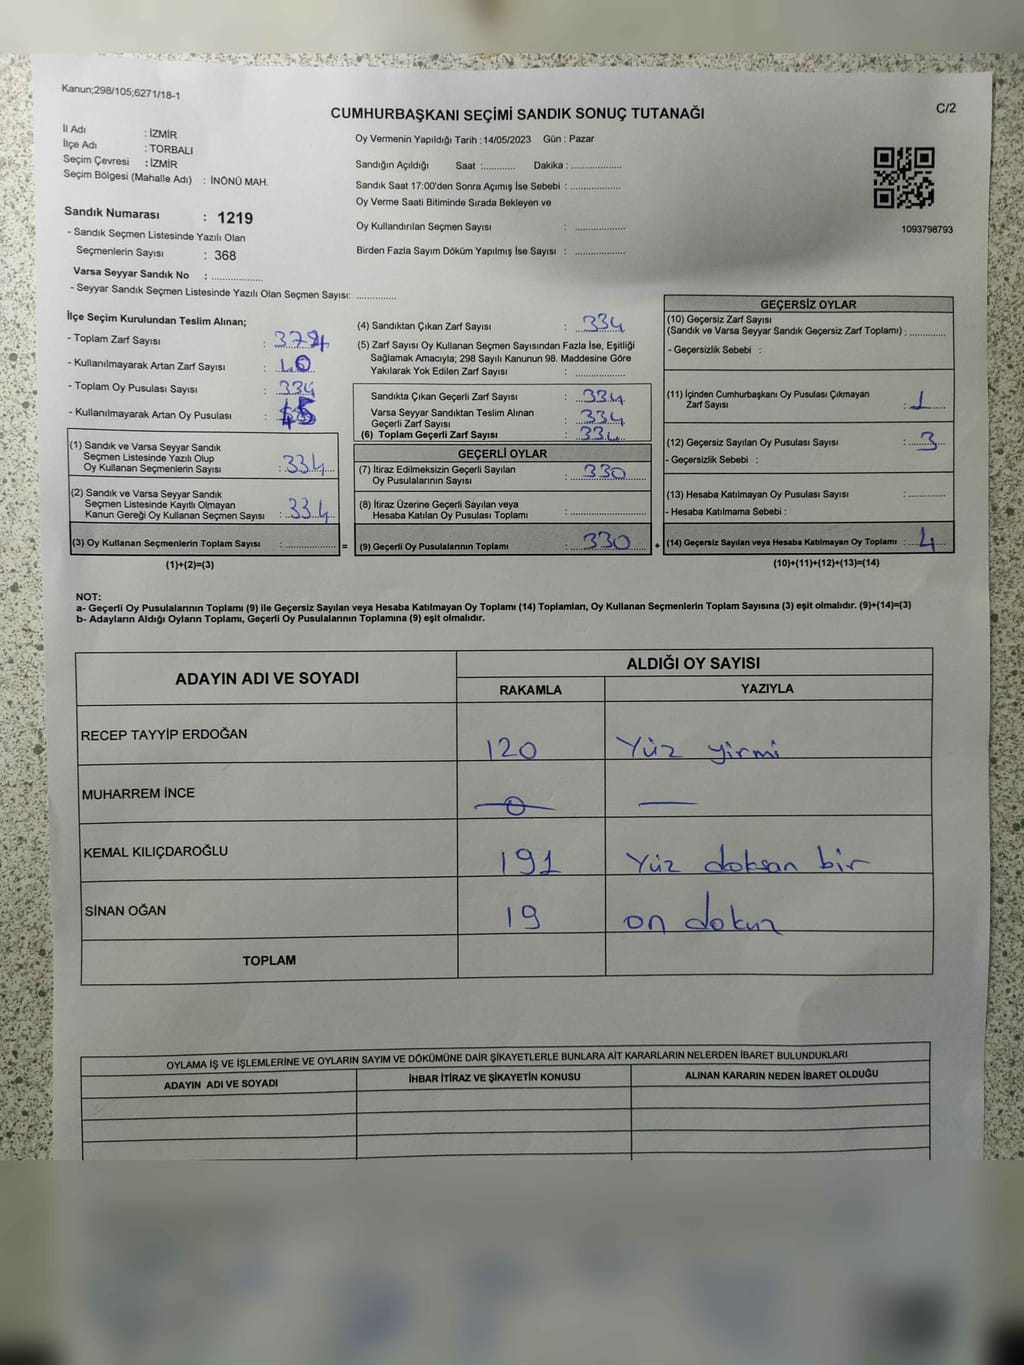 Kanun;298/105;6271/18-1
C/2
CUMHURBAŞKANI SEÇİMİ SANDIK SONUÇ TUTANAĞI
İl Adı : İZMİR
İlçe Adı : TORBALI
Seçim Çevresi : İZMİR
Seçim Bölgesi (Mahalle Adı) : İNÖNÜ MAH.
Sandık Numarası : 1219
- Sandık Seçmen Listesinde Yazılı Olan
Seçmenlerin Sayısı : 368
Varsa Seyyar Sandık No : ..................
- Seyyar Sandık Seçmen Listesinde Yazılı Olan Seçmen Sayısı: ..............
Oy Vermenin Yapıldığı Tarih :14/05/2023 Gün : Pazar
Sandığın Açıldığı Saat :............ Dakika : ..................
Sandık Saat 17:00'den Sonra Açımış İse Sebebi : ..................
Oy Verme Saati Bitiminde Sırada Bekleyen ve
Oy Kullandırılan Seçmen Sayısı : ..................
Birden Fazla Sayım Döküm Yapılmış İse Sayısı : ..................
1093798793
İlçe Seçim Kurulundan Teslim Alınan;
- Toplam Zarf Sayısı :
- Kullanılmayarak Artan Zarf Sayısı : 40
- Toplam Oy Pusulası Sayısı : 334
- Kullanılmayarak Artan Oy Pusulası :
(1) Sandık ve Varsa Seyyar Sandık
Seçmen Listesinde Yazılı Olup
Oy Kullanan Seçmenlerin Sayısı : 334
(2) Sandık ve Varsa Seyyar Sandık
Seçmen Listesinde Kayıtlı Olmayan
Kanun Gereği Oy Kullanan Seçmen Sayısı : 334
(3) Oy Kullanan Seçmenlerin Toplam Sayısı : .............. =
(1)+(2)=(3)
(4) Sandıktan Çıkan Zarf Sayısı : 334
(5) Zarf Sayısı Oy Kullanan Seçmen Sayısından Fazla İse, Eşitliği
Sağlamak Amacıyla; 298 Sayılı Kanunun 98. Maddesine Göre
Yakılarak Yok Edilen Zarf Sayısı : ..................
Sandıkta Çıkan Geçerli Zarf Sayısı : 334
Varsa Seyyar Sandıktan Teslim Alınan
Geçerli Zarf Sayısı : 334
(6) Toplam Geçerli Zarf Sayısı : 334
GEÇERLİ OYLAR
(7) İtiraz Edilmeksizin Geçerli Sayılan
Oy Pusulalarının Sayısı : 330
(8) İtiraz Üzerine Geçerli Sayılan veya
Hesaba Katılan Oy Pusulası Toplamı : ..................
(9) Geçerli Oy Pusulalarının Toplamı : 330 +
GEÇERSİZ OYLAR
(10) Geçersiz Zarf Sayısı
(Sandık ve Varsa Seyyar Sandık Geçersiz Zarf Toplamı) : ............
- Geçersizlik Sebebi :
(11) İçinden Cumhurbaşkanı Oy Pusulası Çıkmayan
Zarf Sayısı : 1
(12) Geçersiz Sayılan Oy Pusulası Sayısı : 3
- Geçersizlik Sebebi :
(13) Hesaba Katılmayan Oy Pusulası Sayısı : ............
- Hesaba Katılmama Sebebi :
(14) Geçersiz Sayılan veya Hesaba Katılmayan Oy Toplamı : 4
(10)+(11)+(12)+(13)=(14)
NOT:
a- Geçerli Oy Pusulalarının Toplamı (9) ile Geçersiz Sayılan veya Hesaba Katılmayan Oy Toplamı (14) Toplamları, Oy Kullanan Seçmenlerin Toplam Sayısına (3) eşit olmalıdır. (9)+(14)=(3)
b- Adayların Aldığı Oyların Toplamı, Geçerli Oy Pusulalarının Toplamına (9) eşit olmalıdır.
ADAYIN ADI VE SOYADI
ALDIĞI OY SAYISI
RAKAMLA YAZIYLA
RECEP TAYYİP ERDOĞAN 120 Yüz yirmi
MUHARREM İNCE 0 —
KEMAL KILIÇDAROĞLU 191 Yüz doksan bir
SİNAN OĞAN 19 on dokuz
TOPLAM
OYLAMA İŞ VE İŞLEMLERİNE VE OYLARIN SAYIM VE DÖKÜMÜNE DAİR ŞİKAYETLERLE BUNLARA AİT KARARLARIN NELERDEN İBARET BULUNDUKLARI
ADAYIN ADI VE SOYADI İHBAR İTİRAZ VE ŞİKAYETİN KONUSU ALINAN KARARIN NEDEN İBARET OLDUĞU